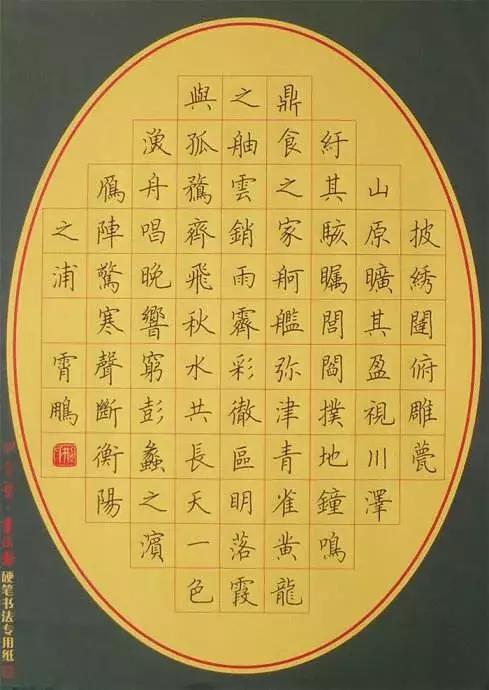 披綉闥俯雕甍
山原曠其盈視川澤
紆其駭矚閭閻撲地鐘鳴
鼎食之家舸艦弥津青雀黄龍
之舳雲銷雨霽彩徹區明落霞
與孤鶩齊飛秋水共長天一色
漁舟唱晚響窮彭蠡之濱
鴈陣驚寒聲斷衡陽
之浦
霄鵬
硬笔书法专用纸